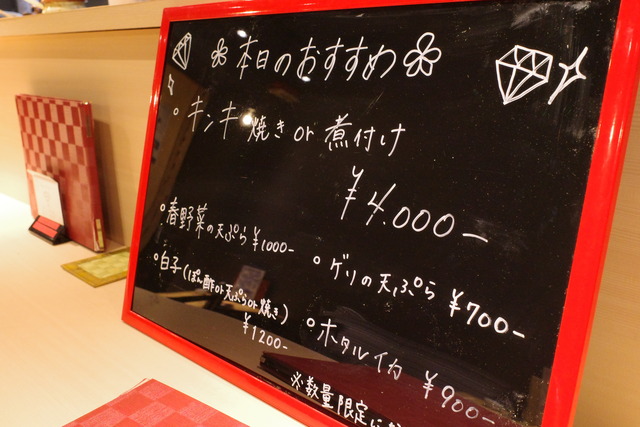 本日のおすすめ
。キンキ 焼き or 煮付け
¥4.000-
。春野菜の天ぷら ¥1000-
。ゲソの天ぷら ¥700-
。白子(ぽん酢or天ぷらor焼き)
¥1200-
。ホタルイカ ¥900-
※数量限定に